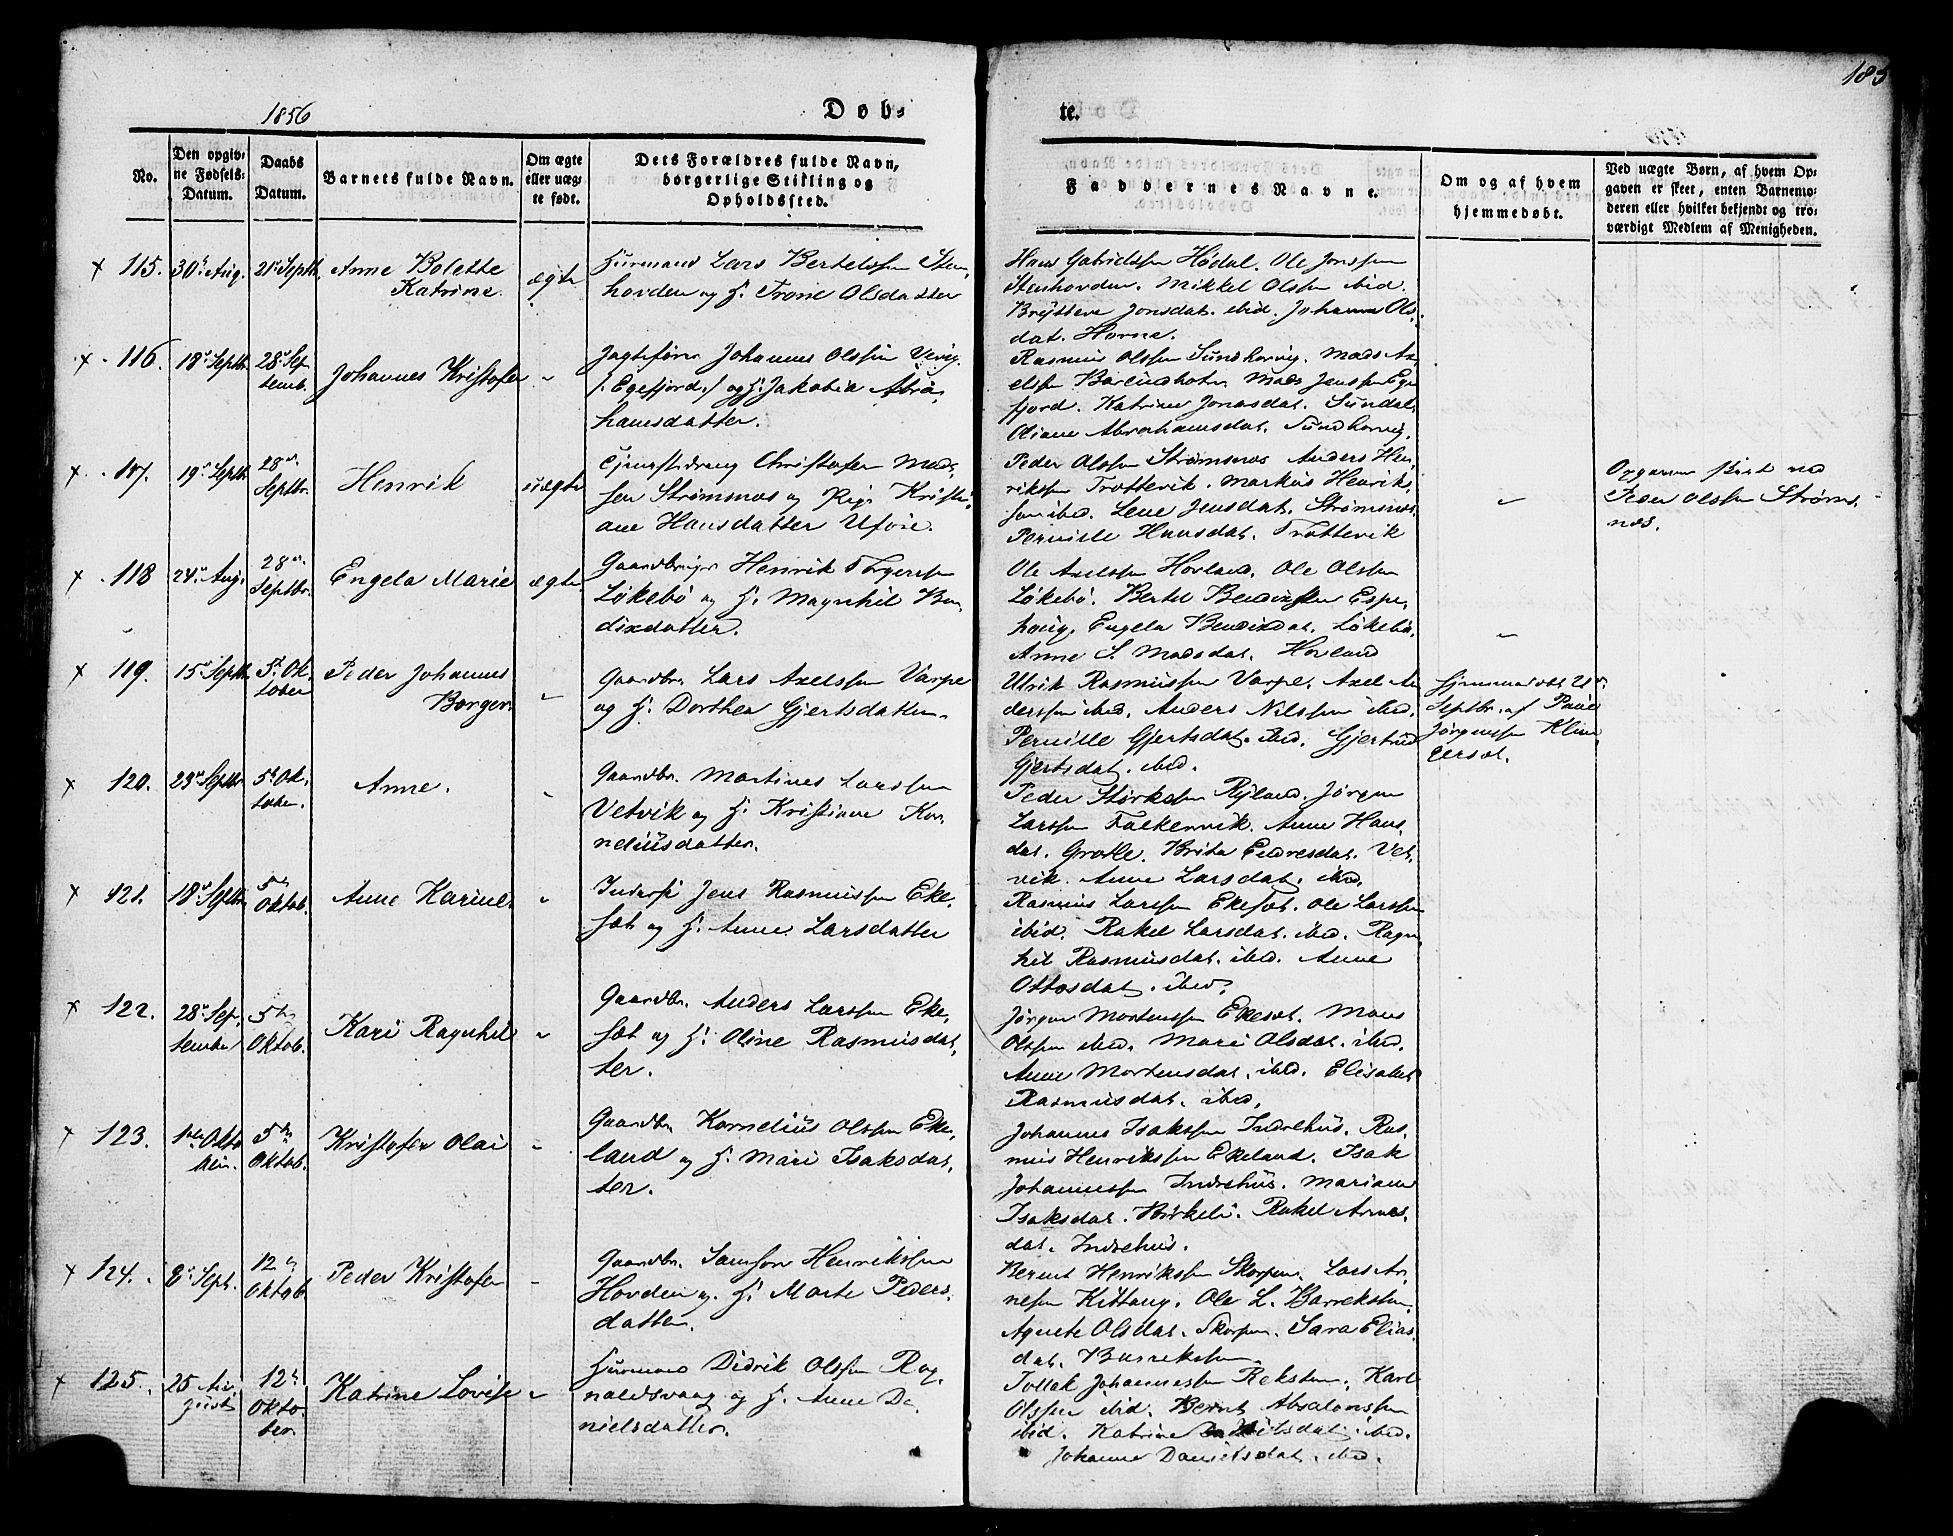 1856
Døb-
te.
183
No.
Den opgiv-
ne Fødsels-
Datum.
Daabs
Datum.
Barnets fulde Navn.
Om ægte
eller uæg-
te født.
Dets Forældres fulde Navn,
borgerlige Stilling og
Opholdssted.
Faddernes Navne.
Om og af hvem
hjemmedøbt.
Ved uægte Børn, af hvem Op-
gaven er skeet, enten Barnemo-
deren eller hvilket bekjendt og tro-
værdigt Medlem af Menigheden.
115. 30 Aug. 21 Septb. Anne Bolette
Katrine ægte
Huusmand Lars Bertelssen Sten-
hovden og H. Trone Olsdatter
Hans Gabrielssen Hødal. Ole Jonssen
Stenhovden. Mikkel Olssen ibid.
Jonsdat. ibid. Johanne Ols-
dat. Horne.
116. 18 Septbr. 28 Sep-
temb. Johannes Kristofer "
Johannes Olssen
/: Egefjord :/ og H. Jakobia Abra-
hamsdatter.
Rasmus Olssen Mads Ax-
elssen Mads Janssen Ege-
fjord. Katrine Jonasdat. Sundal.
Oliane Abrahamsdat.
117. 19 Septbr. 28
Septbr. Henrik uægte
Christofer Mads-
sen Strømsnæs og Pige Kristi-
ane Hansdatter Uføie.
Peder Olssen Strømsnæs Anders Hen-
rikssen Trættevik. Markus Henriks-
sen ibid. Lene Jensdat. Strømsnæs.
Pernille Hansdat. Trættevik
"
Opgaven skeet ved
Peder Olssen Strøms-
næs.
118 24 Aug. 28
Septbr. Engela Marie ægte
Gaardbruger Henrik
Løkebø og H. Magnhil Ben-
dixdatter.
Ole Axelssen Hovland. Ole Olssen
Løkebø. Bertel Bendixsen Espe-
houg. Engela Bendixdat. Løkebø.
Anne S. Madsdat. Hovland
"
119. 15 Septb. 5 Ok-
tober Peder Johannes
Borger. "
Gaardbr. Lars Axelssen Varpe
og H. Dorthea Gjertsdatter.
Ulrik Rasmussen Varpe. Axel An-
derssen ibid. Anders Nilssen ibid.
Pernille Gjertsdat. ibid. Gjertrud
Gjertsdat. ibid.
Septbr. af Poul
Jørgenssen
120. 23 Septbr. 5 Ok-
tober. Anne. "
Gaardbr. Martines Larssen
Vetvik og H. Kristiane Kor-
neliusdatter.
Peder Størkssen Ryland. Jørgen
Larssen Falkenvik. Anne Hans-
dat. Grotle. Brita Endresdat. Vet-
vik. Anne Larsdat. ibid.
121. 18 Septbr. 5
Oktob. Anne Karine. "
Inderst Jens Rasmussen Eke-
sæt og H. Anne Larsdatter
Rasmus Larssen Ekesæt. Ole Larssen
ibid. Rakel Larsdat. ibid. Ragn-
hil Rasmusdat. ibid. Anne
Ottosdat. ibid.
122. 28 Sep-
tember 5
Oktob. Kari Ragnhil "
Gaardbr. Anders Larssen Eke-
sæt og H. Oline Rasmusdat-
ter.
Jørgen Mortenssen Ekesæt. Mons
Olssen ibid. Mari Olsdat. ibid.
Anne Mortensdat. ibid. Elisabet
Rasmusdat. ibid.
123. 1 Okto-
5
Oktob. Kristofer Olai "
Gaardbr. Kornelius Olssen Eke-
land og H. Mari Isaksdat-
ter.
Johannes Isakssen Indrehus. Ras-
mus Henrikssen Ekeland. Isak
Johannessen Indrehus. Mariane
Isaksdat. Birkeli. Rakel Arnes-
dat. Indrehus.
124. 8 Sept. 12
Oktob. Peder Kristofer "
Gaardbr. Samson Henrikssen
Hovden og H. Marte Peders-
datter.
Bernt Henrikssen Skorpen. Lars Ar-
nessen Kittang. Ole L. Barreksten.
Agnete Olsdat. Skorpen. Sara Elias-
dat. Barreksten
125. 25 Au-
gust 12
Okto-
ber. Katrine Lovise "
Huusmand Didrik Olssen Rag-
naldsvaag og H. Anne Da-
nielsdatter.
Tollak Johannessen Reksten. Karl
Olssen ibid. Bernt Absalonssen
ibid. Katrine ibid.
Johanne Danielsdat. ibid.